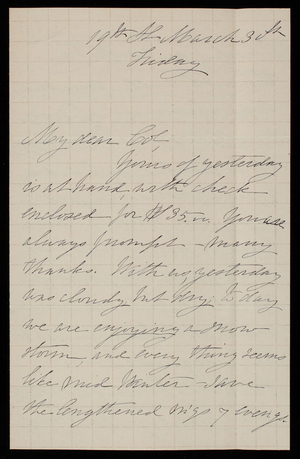 19th St March 30th
Friday
My dear Col,
Yours of yesterday
is at hand, with check
enclosed for $35.00. You are
always prompt - many
thanks. With us yesterday
was cloudy, but dry; To day
we are enjoying a snow
storm, and every thing seems
like mid Winter - save
the lengthened m'gs & eveng.